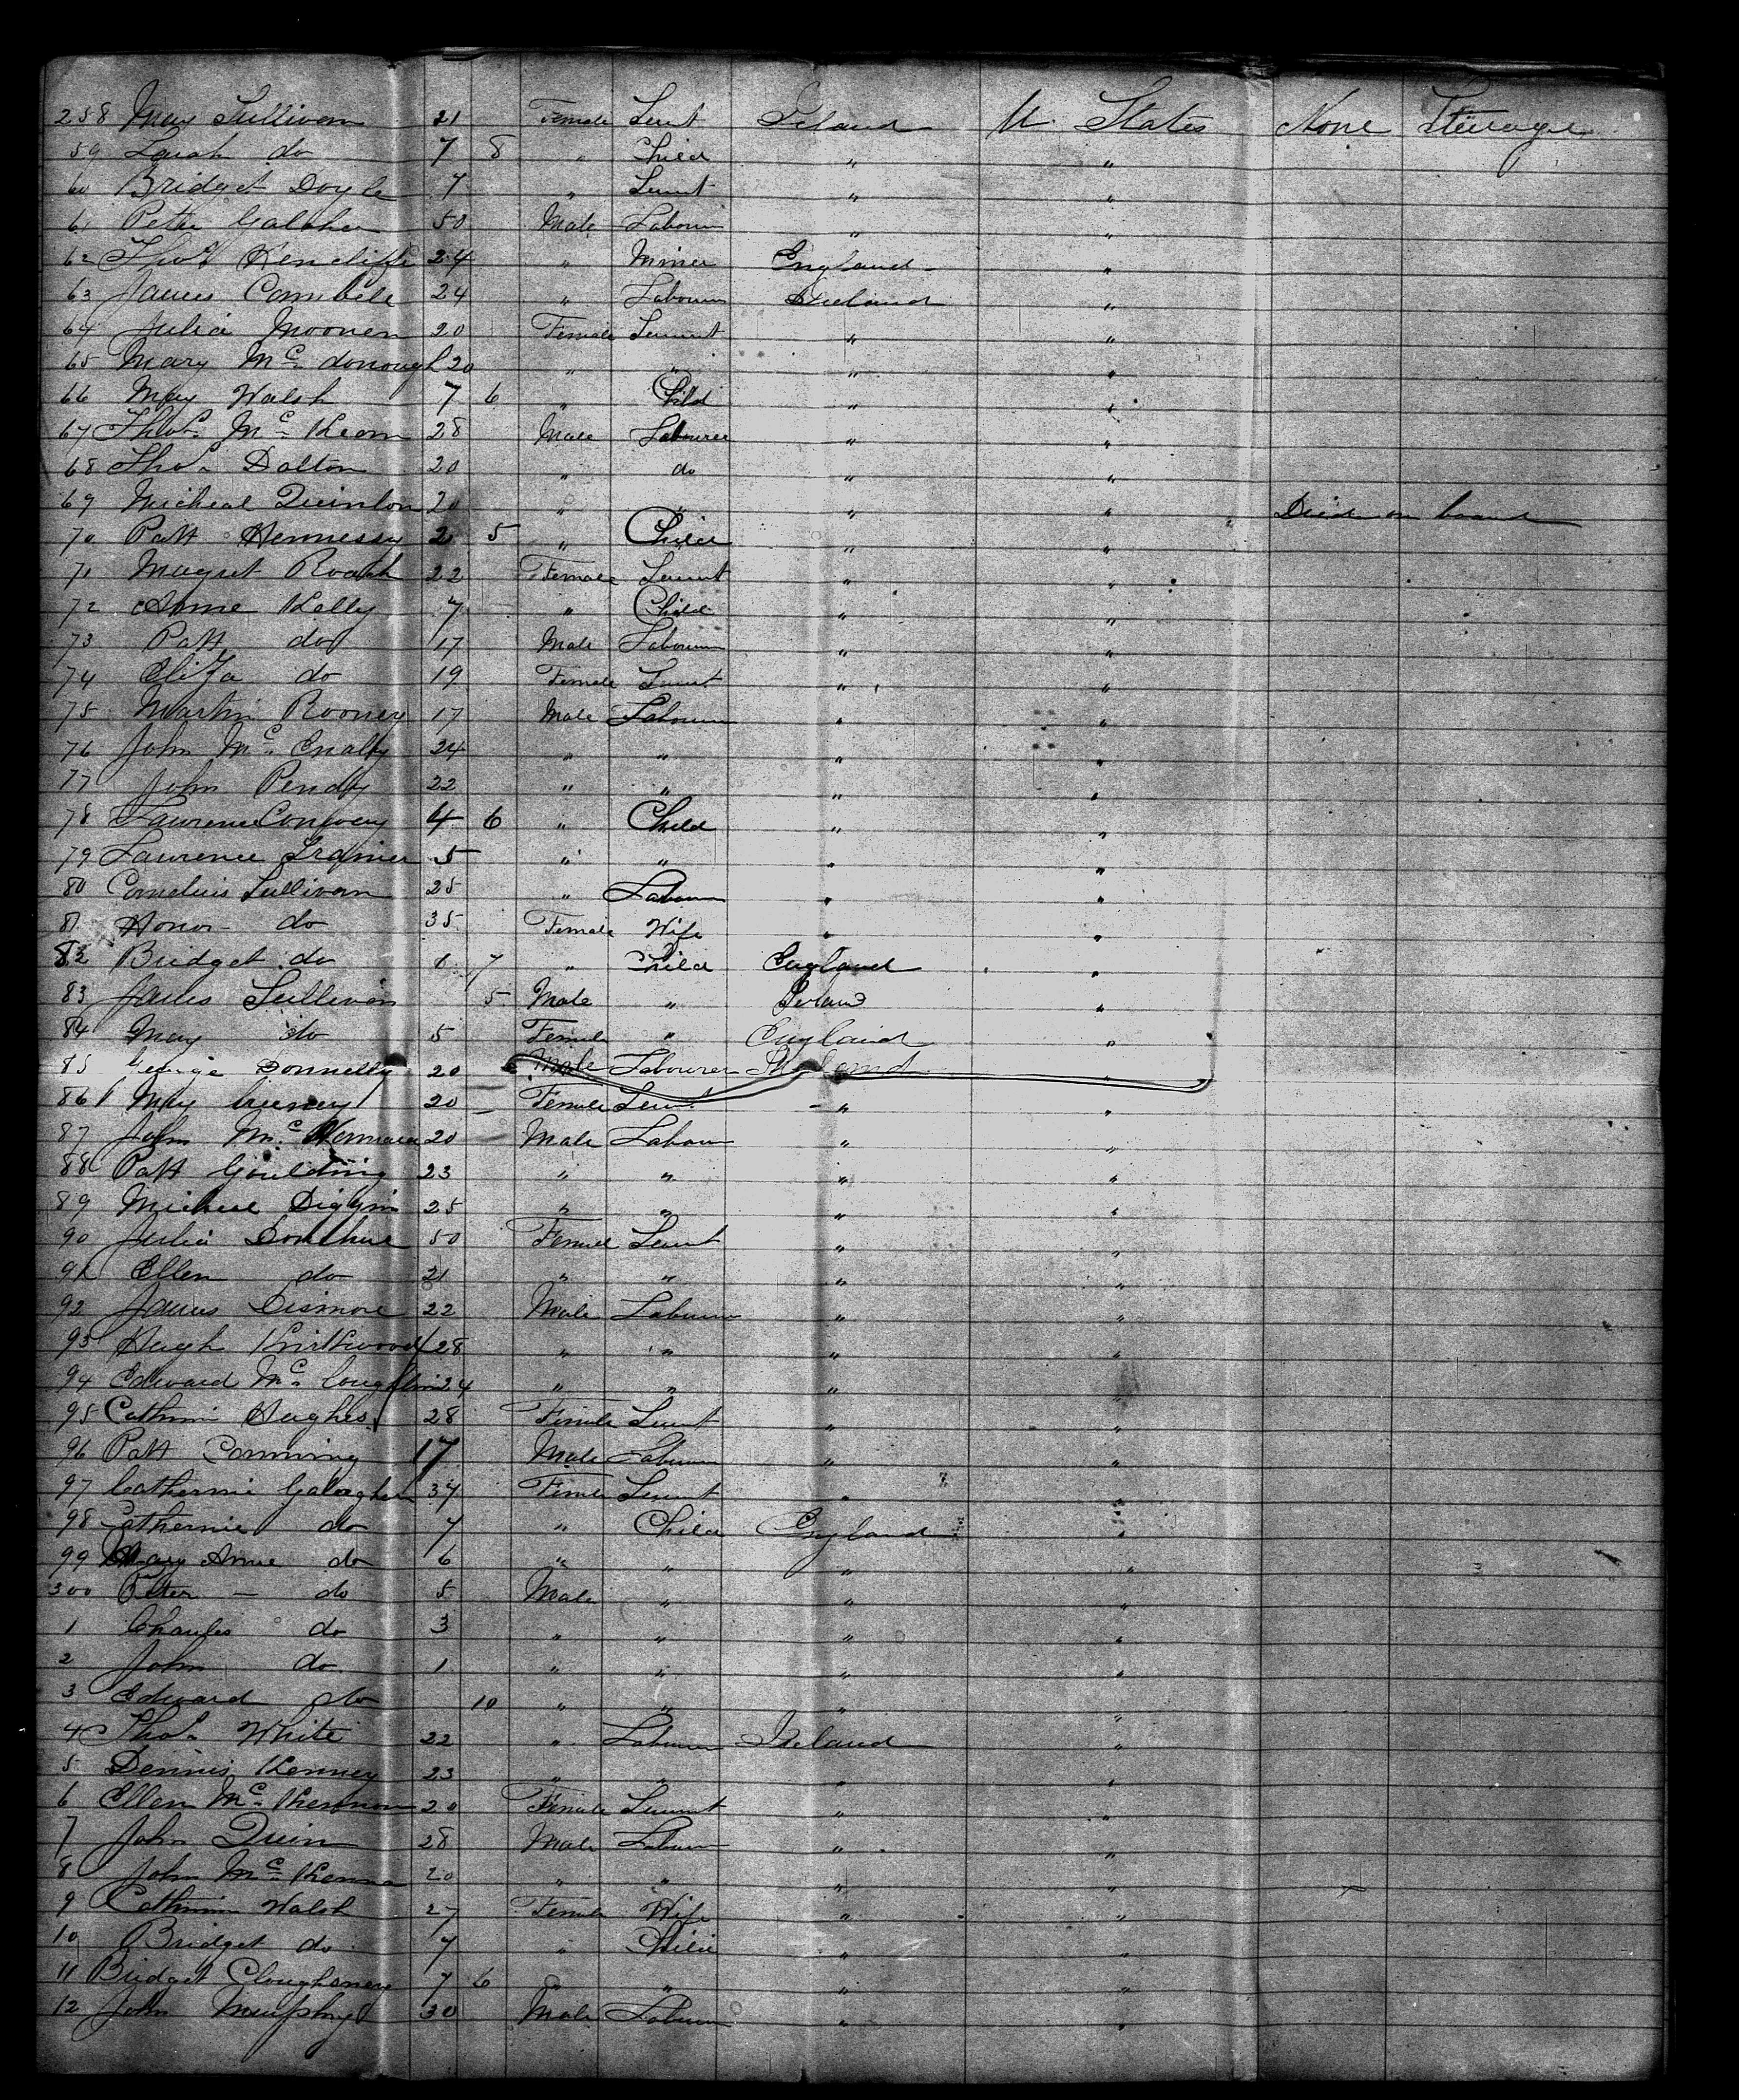 258 Mary Sullivan 21 Female Servt Ireland U. States None Steerage
59 Sarah do 7 8 " Child " "
60 Bridget Doyle 7 " Servt " "
61 Peter Galaher 50 Male Labourer " "
62 Thos Rencliffe 24 " Miner England "
63 James Cambele 24 " Labourer Ireland "
64 Julia Moonen 20 Female Servnt " "
65 Mary Mc donough 20 " " " "
66 Mary Walsh 7 6 " Child " "
67 Thos Mc Keon 28 Male Labourer " "
68 Thos Dalton 20 " do " "
69 Micheal Quinlon 20 " " " " Died on board
70 Patt Hennessy 2 5 " Child " "
71 Magret Roach 22 Female Servnt " "
72 Anne Kelly 7 " Child " "
73 Patt do 17 Male Labourer " "
74 Eliza do 19 Female Servt " "
75 Martin Rooney 17 Male Labourer " "
76 John Mc Enally 24 " " " "
77 John Pendy 22 " " " "
78 Lawrence Conway 4 6 " Child " "
79 Lawrence 5 " " " "
80 Cornelius Sullivan 25 " Labourer " "
81 Honor do 35 Female Wife " "
82 Bridget do 6 7 " Child England "
83 James Sullivan 5 Male " Ireland "
84 Mary do 5 Female " England "
85 George Donnelly 20 Male Labourer Ireland "
86 Mary 20 Female Servt " "
87 John Mc Nemara 20 Male Labour " "
88 Patt Goulding 23 " " " "
89 Micheal Diggin 25 " " " "
90 Julia Donthue 50 Female Servnt " "
91 Ellen do 21 " " " "
92 James Dismore 22 Male Labourer " "
93 Hugh Kirkwood 28 " " " "
94 Edward Mc Coughlin 24 " " " "
95 Cathrin Hughes 28 Female Servnt " "
96 Patt Comming 17 Male Labourer " "
97 Catherine Galagher 34 Female Servnt " "
98 Catherine do 7 " Child England "
99 Mary Anne do 6 " " " "
300 Peter — do 5 Male " " "
1 Charles do 3 " " " "
2 John do 1 " " " "
3 Edward do 10 " " " "
4 Thos White 22 " Labourer Ireland "
5 Dennis Kenney 23 " " " "
6 Ellen Mc Kennon 20 Female Servnt " "
7 John Quin 28 Male Labour " "
8 John Mc Kenna 20 " " " "
9 Cathrin Walsh 27 Female Wife " "
10 Bridget do 7 " Child " "
11 Bridget Cloughonery 7 6 " " " "
12 John Murphy 30 Male Labourer " "